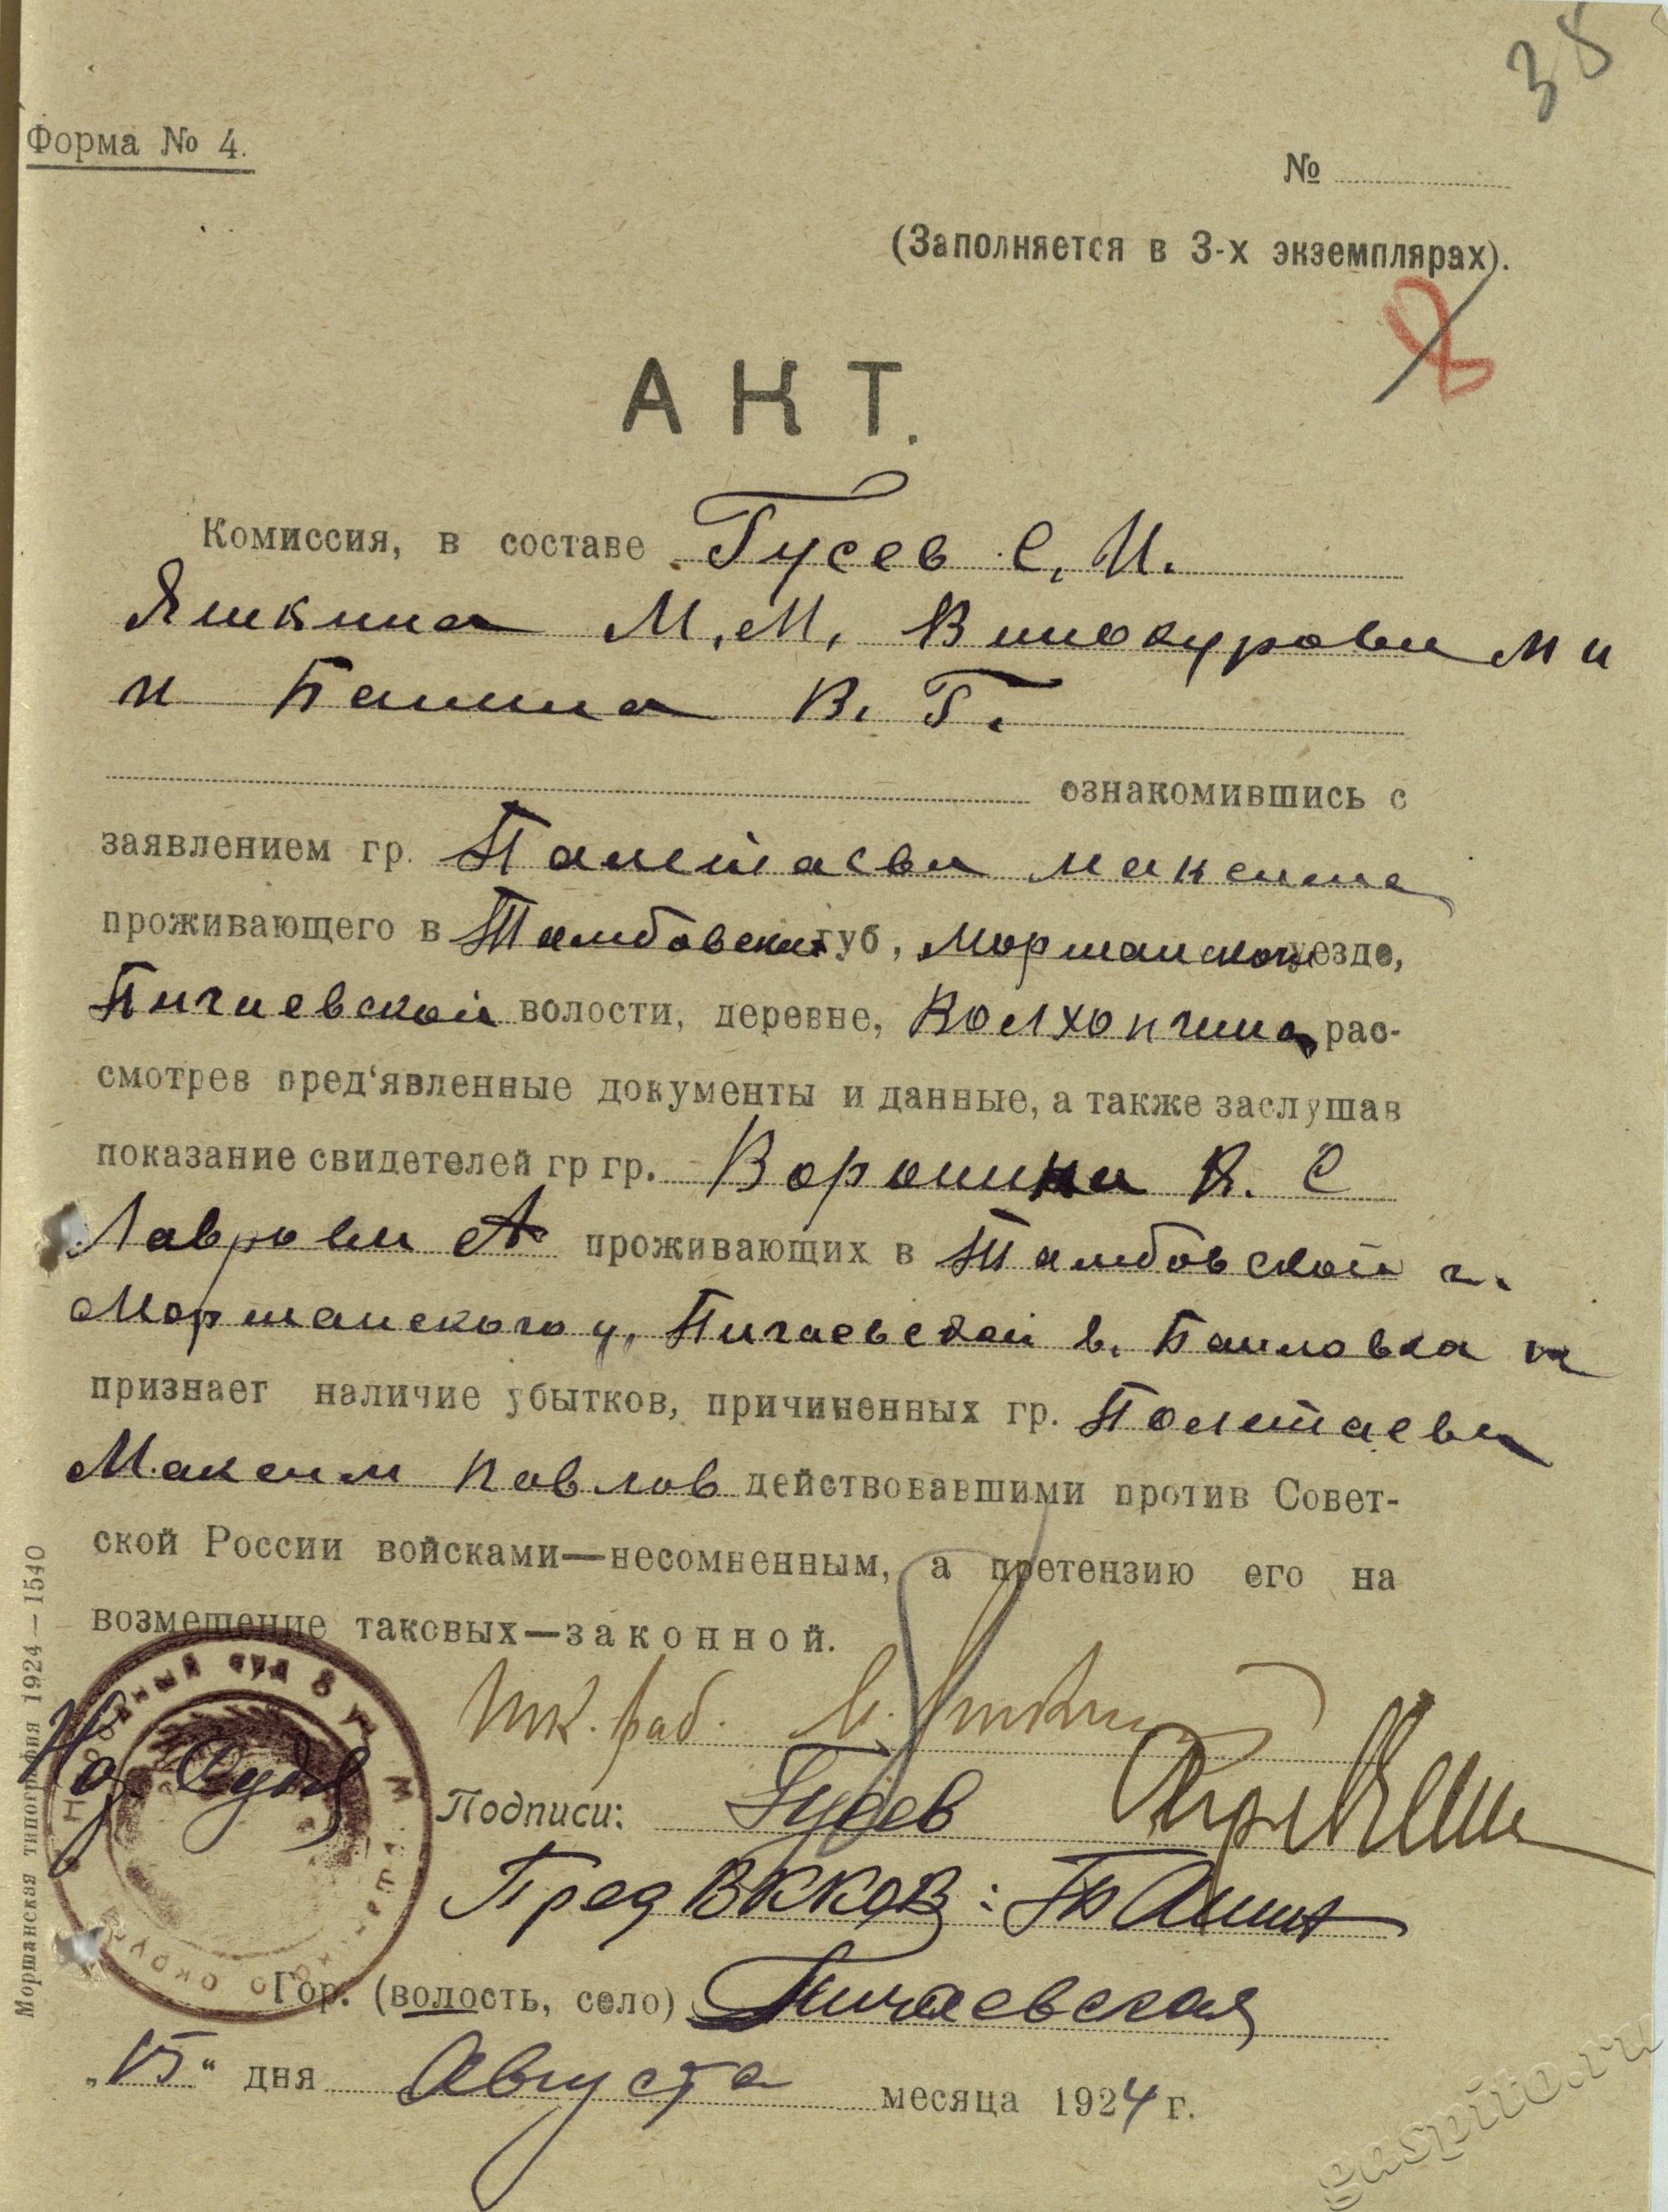 38
Форма № 4.
№
(Заполняется в 3-х экземплярах).
2
АКТ.
Комиссия, в составе Гусев С. И.
Яшкина М. М. Винокурова М И
и Башина В. Г.
ознакомившись с
заявлением гр. Палетаева Максима
проживающего в Тамбовской губ, Моршанском уезде,
Пичаевской волости, деревне, Волхонщина рас-
смотрев пред‘явленные документы и данные, а также заслушав
показание свидетелей гр гр. Воронина Я. С
Лаврова А проживающих в Тамбовской г.
Моршанского у. Пичаевской в. Баиловка и
признает наличие убытков, причиненных гр. Полетаева
Максим Павлов действовавшими против Совет-
ской России войсками—несомненным, а претензию его на
возмещение таковых—законной.
Нар Судья
Подписи: Гусев
Пред ВККОВ: Башин
Гор. (волость, село) Пичаевская
„15“ дня Августа месяца 1924 г.
Моршанская типография 1924—1540
gaspito.ru